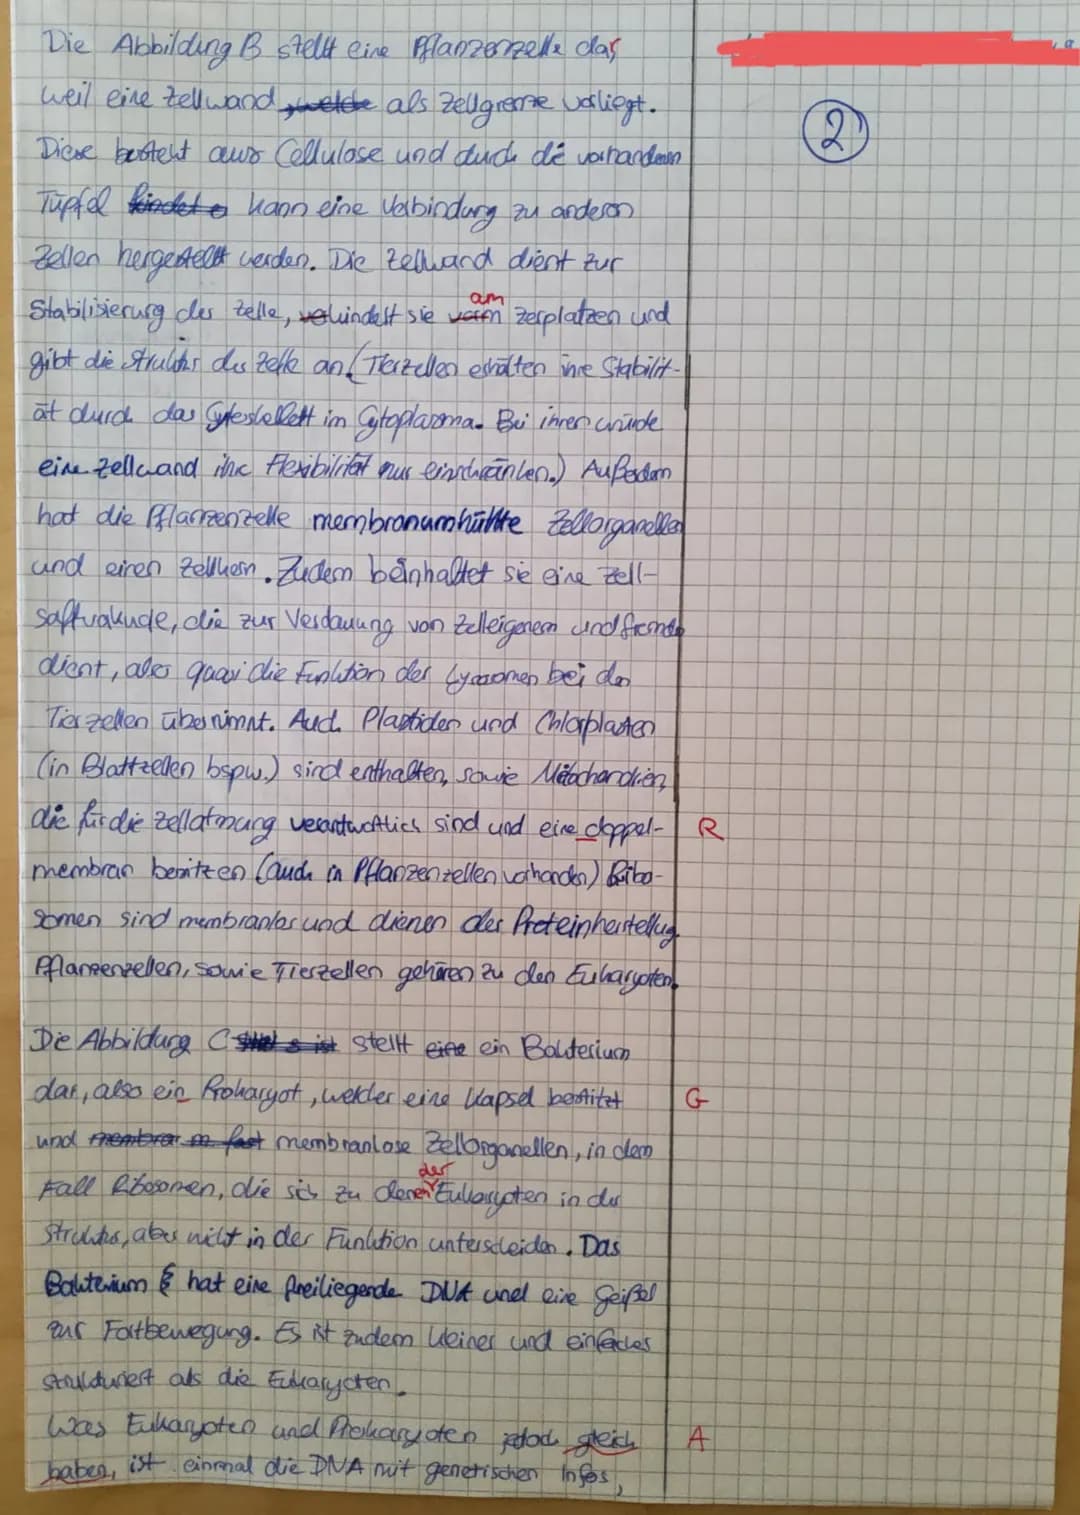 Die Abbildung B stellt eine Pflanzenzelle dar,
weil eine Zellwand , welche als Zellgrenze vorliegt.
2
Diese besteht aus Cellulose und durch die vorhandenen
Tüpfel findet kann eine Verbindung zu anderen
Zellen hergestellt werden. Die Zellwand dient zur
am
Stabilisierung der Zelle, verhindert sie vorm zerplatzen und
gibt die Struktur der Zelle an. (Tierzellen erhalten ihre Stabilit-
ät durch das Cytoskelett im Cytoplasma. Bei ihnen würde
eine Zellwand ihre Flexibilität nur einschränken.) Außerdem
hat die Pflanzenzelle membranumhüllte Zellorganellen
und einen Zellkern. Zudem beinhaltet sie eine Zell-
saftvakuole, die zur Verdauung von Zelleigenem und fremdem
dient, also quasi die Funktion der Lysosomen bei den
Tierzellen übernimmt. Auch Plastiden und Chloroplasten
(in Blattzellen bspw.) sind enthalten, sowie Mitochondrien,
die für die Zellatmung verantwortlich sind und eine doppel- R
membran besitzen (auch in Pflanzenzellen vorhanden) Ribo-
somen sind membranlos und dienen der Proteinherstellug.
Pflanzenzellen, sowie Tierzellen gehören zu den Eukaryoten.
Die Abbildung C ist stellt eine ein Bakterium
dar, also ein Prokaryot, welcher eine Kapsel besitzt G
und membran m fast membranlose Zellorganellen, in dem
der
Fall Ribosomen, die sich zu denen Eukaryoten in der
Struktur, aber nicht in der Funktion unterscheiden. Das
Bakterium hat eine freiliegende DNA und eine Geißel
zur Fortbewegung. Es ist zudem kleiner und einfacher
strukturiert als die Eukaryoten.
Was Eukaryoten und Prokaryoten jedoch gleich A
haben, ist einmal die DNA mit genetischen Infos,